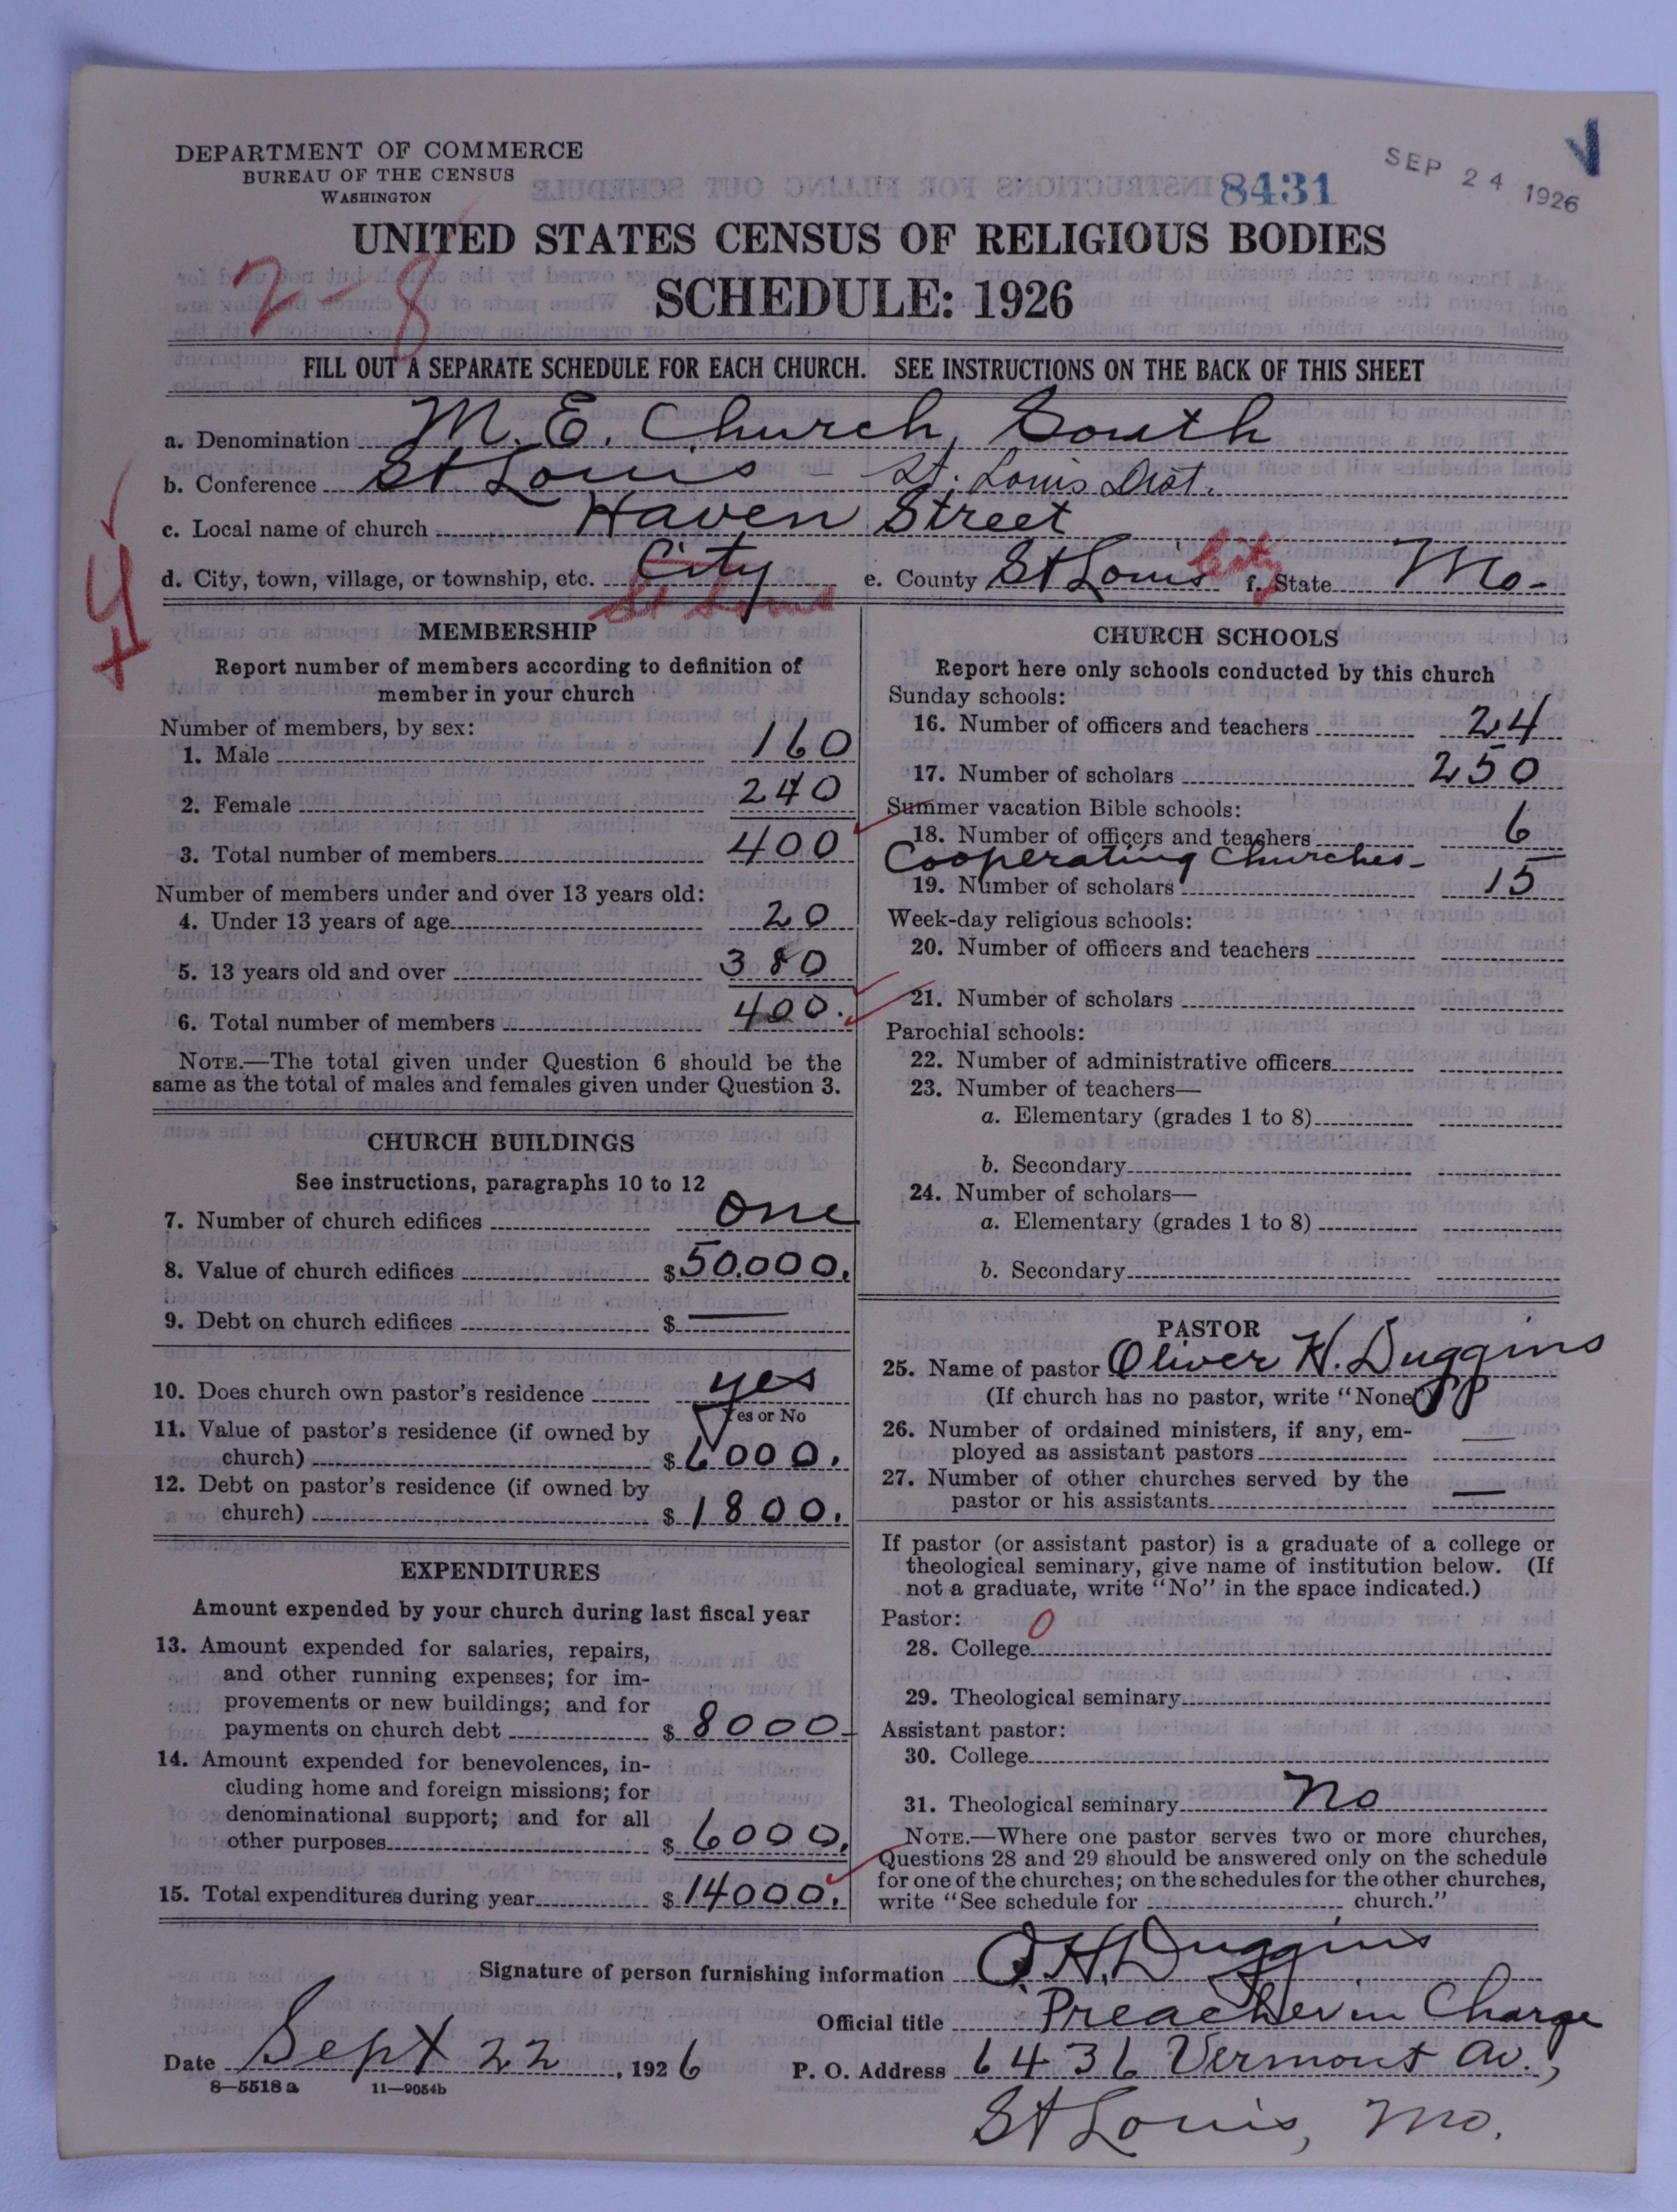 DEPARTMENT OF COMMERCE
BUREAU OF THE CENSUS
WASHINGTON
8431
SEP 24 1926
UNITED STATES CENSUS OF RELIGIOUS BODIES
SCHEDULE: 1926
2-8
FILL OUT A SEPARATE SCHEDULE FOR EACH CHURCH. SEE INSTRUCTIONS ON THE BACK OF THIS SHEET
a. Denomination M. E. Church, South
b. Conference St Louis - St. Louis Dist.
c. Local name of church Haven Street
d. City, town, village, or township, etc. City St Louis e. County St Louis City f. State Mo-
MEMBERSHIP
Report number of members according to definition of
member in your church
Number of members, by sex:
1. Male 160
2. Female 240
3. Total number of members 400
Number of members under and over 13 years old:
4. Under 13 years of age 20
5. 13 years old and over 380
6. Total number of members 400.
NOTE.—The total given under Question 6 should be the
same as the total of males and females given under Question 3.
CHURCH BUILDINGS
See instructions, paragraphs 10 to 12
7. Number of church edifices one
8. Value of church edifices $50.000.
9. Debt on church edifices $ —
10. Does church own pastor's residence yes
Yes or No
11. Value of pastor's residence (if owned by
church) $6000.
12. Debt on pastor's residence (if owned by
church) $1800.
EXPENDITURES
Amount expended by your church during last fiscal year
13. Amount expended for salaries, repairs,
and other running expenses; for im-
provements or new buildings; and for
payments on church debt $8000-
14. Amount expended for benevolences, in-
cluding home and foreign missions; for
denominational support; and for all
other purposes $6000.
15. Total expenditures during year $14000.
CHURCH SCHOOLS
Report here only schools conducted by this church
Sunday schools:
16. Number of officers and teachers 24
17. Number of scholars 250
Summer vacation Bible schools:
18. Number of officers and teachers 6
Cooperating Churches-
19. Number of scholars 15
Week-day religious schools:
20. Number of officers and teachers
21. Number of scholars
Parochial schools:
22. Number of administrative officers
23. Number of teachers—
a. Elementary (grades 1 to 8)
b. Secondary
24. Number of scholars—
a. Elementary (grades 1 to 8)
b. Secondary
PASTOR
25. Name of pastor Oliver H. Duggins
(If church has no pastor, write "None")
26. Number of ordained ministers, if any, em-
ployed as assistant pastors —
27. Number of other churches served by the
pastor or his assistants —
If pastor (or assistant pastor) is a graduate of a college or
theological seminary, give name of institution below. (If
not a graduate, write "No" in the space indicated.)
Pastor:
28. College 0
29. Theological seminary
Assistant pastor:
30. College
31. Theological seminary no
NOTE.—Where one pastor serves two or more churches,
Questions 28 and 29 should be answered only on the schedule
for one of the churches; on the schedules for the other churches,
write "See schedule for church."
Signature of person furnishing information O. H. Duggins
Official title Preacher in Charge
Date Sept 22, 1926 P. O. Address 6436 Vermont Av.,
8—5518 a 11—9054b
St Louis, Mo.